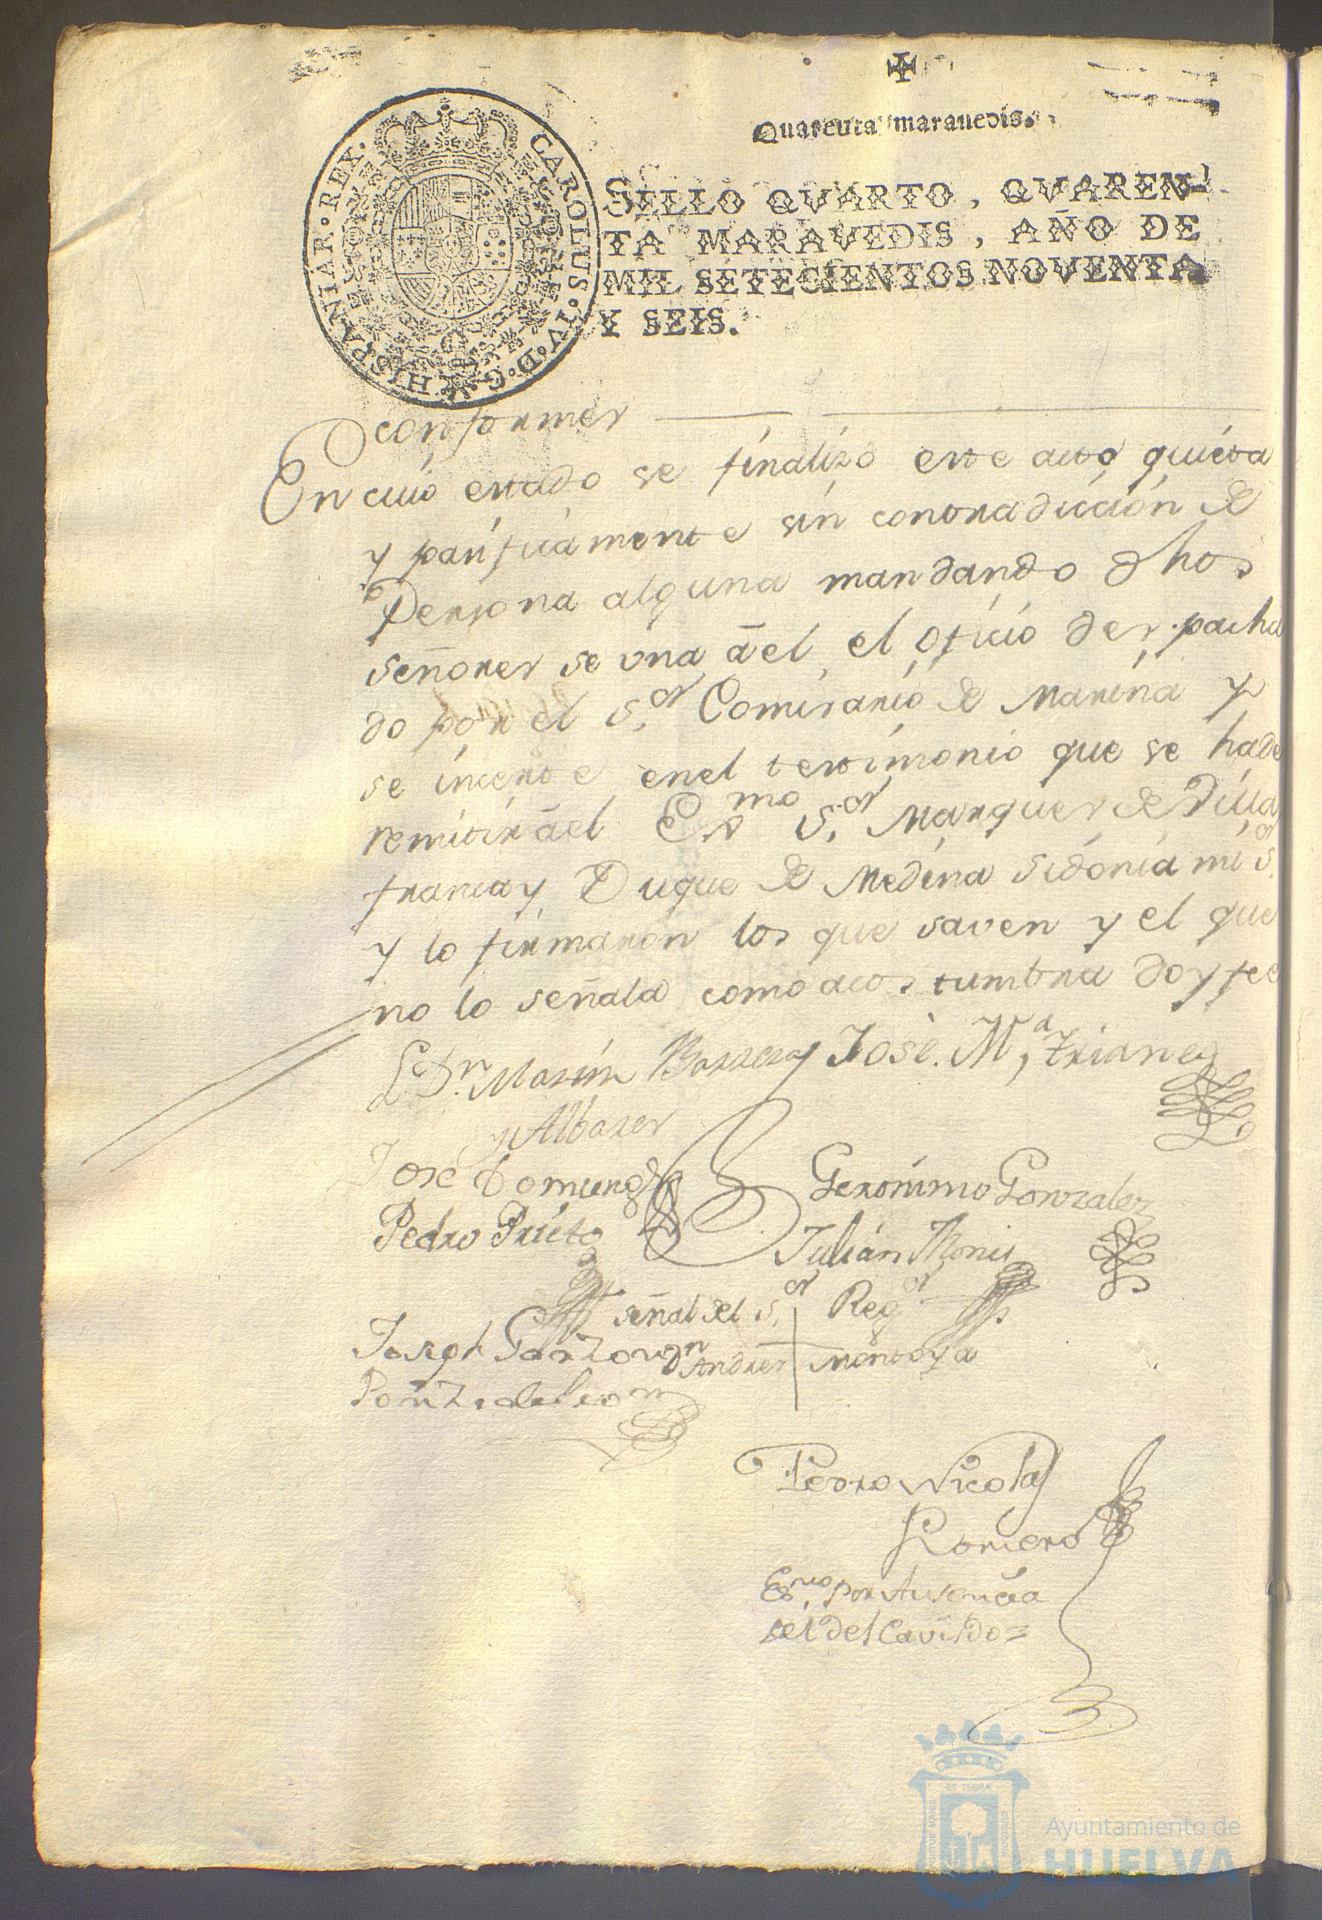 Quarenta maravedis.
SELLO QVARTO, QVAREN-
TA MARAVEDIS, AÑO DE
MIL SETECIENTOS NOVENTA
Y SEIS.
CAROLUS·IV·D·G·HISPANIAR·REX·
conformes
En cuio estado se finalizó este acto quieta
y pasificamente sin contradiccion de
Persona alguna mandando dhos
señores se una ael el oficio despacha
do por el S.or Comisario de Marina y
se incerte enel testimonio que se hade
remitir ael Exmo S.or Marques de Villa
franca y Duque de Medina Sidonia mi S.or
y lo firmaron los que saven y el que
no lo señala como acostumbra doy fee
Lcdo. Dn. Martin Barrera y José. M.a Trianes
y Albares
José Domingz
Geronimo Gonzalez
Pedro Prieto
Julián Monis
señal del S.or Reg.or
Joseph Garzon
Dn Andres Montoya
Ponze de Leon
Pedro Nicolas
Romero
Esno. por Ausencia
del del Cavildo=
Ayuntamiento de
HUELVA